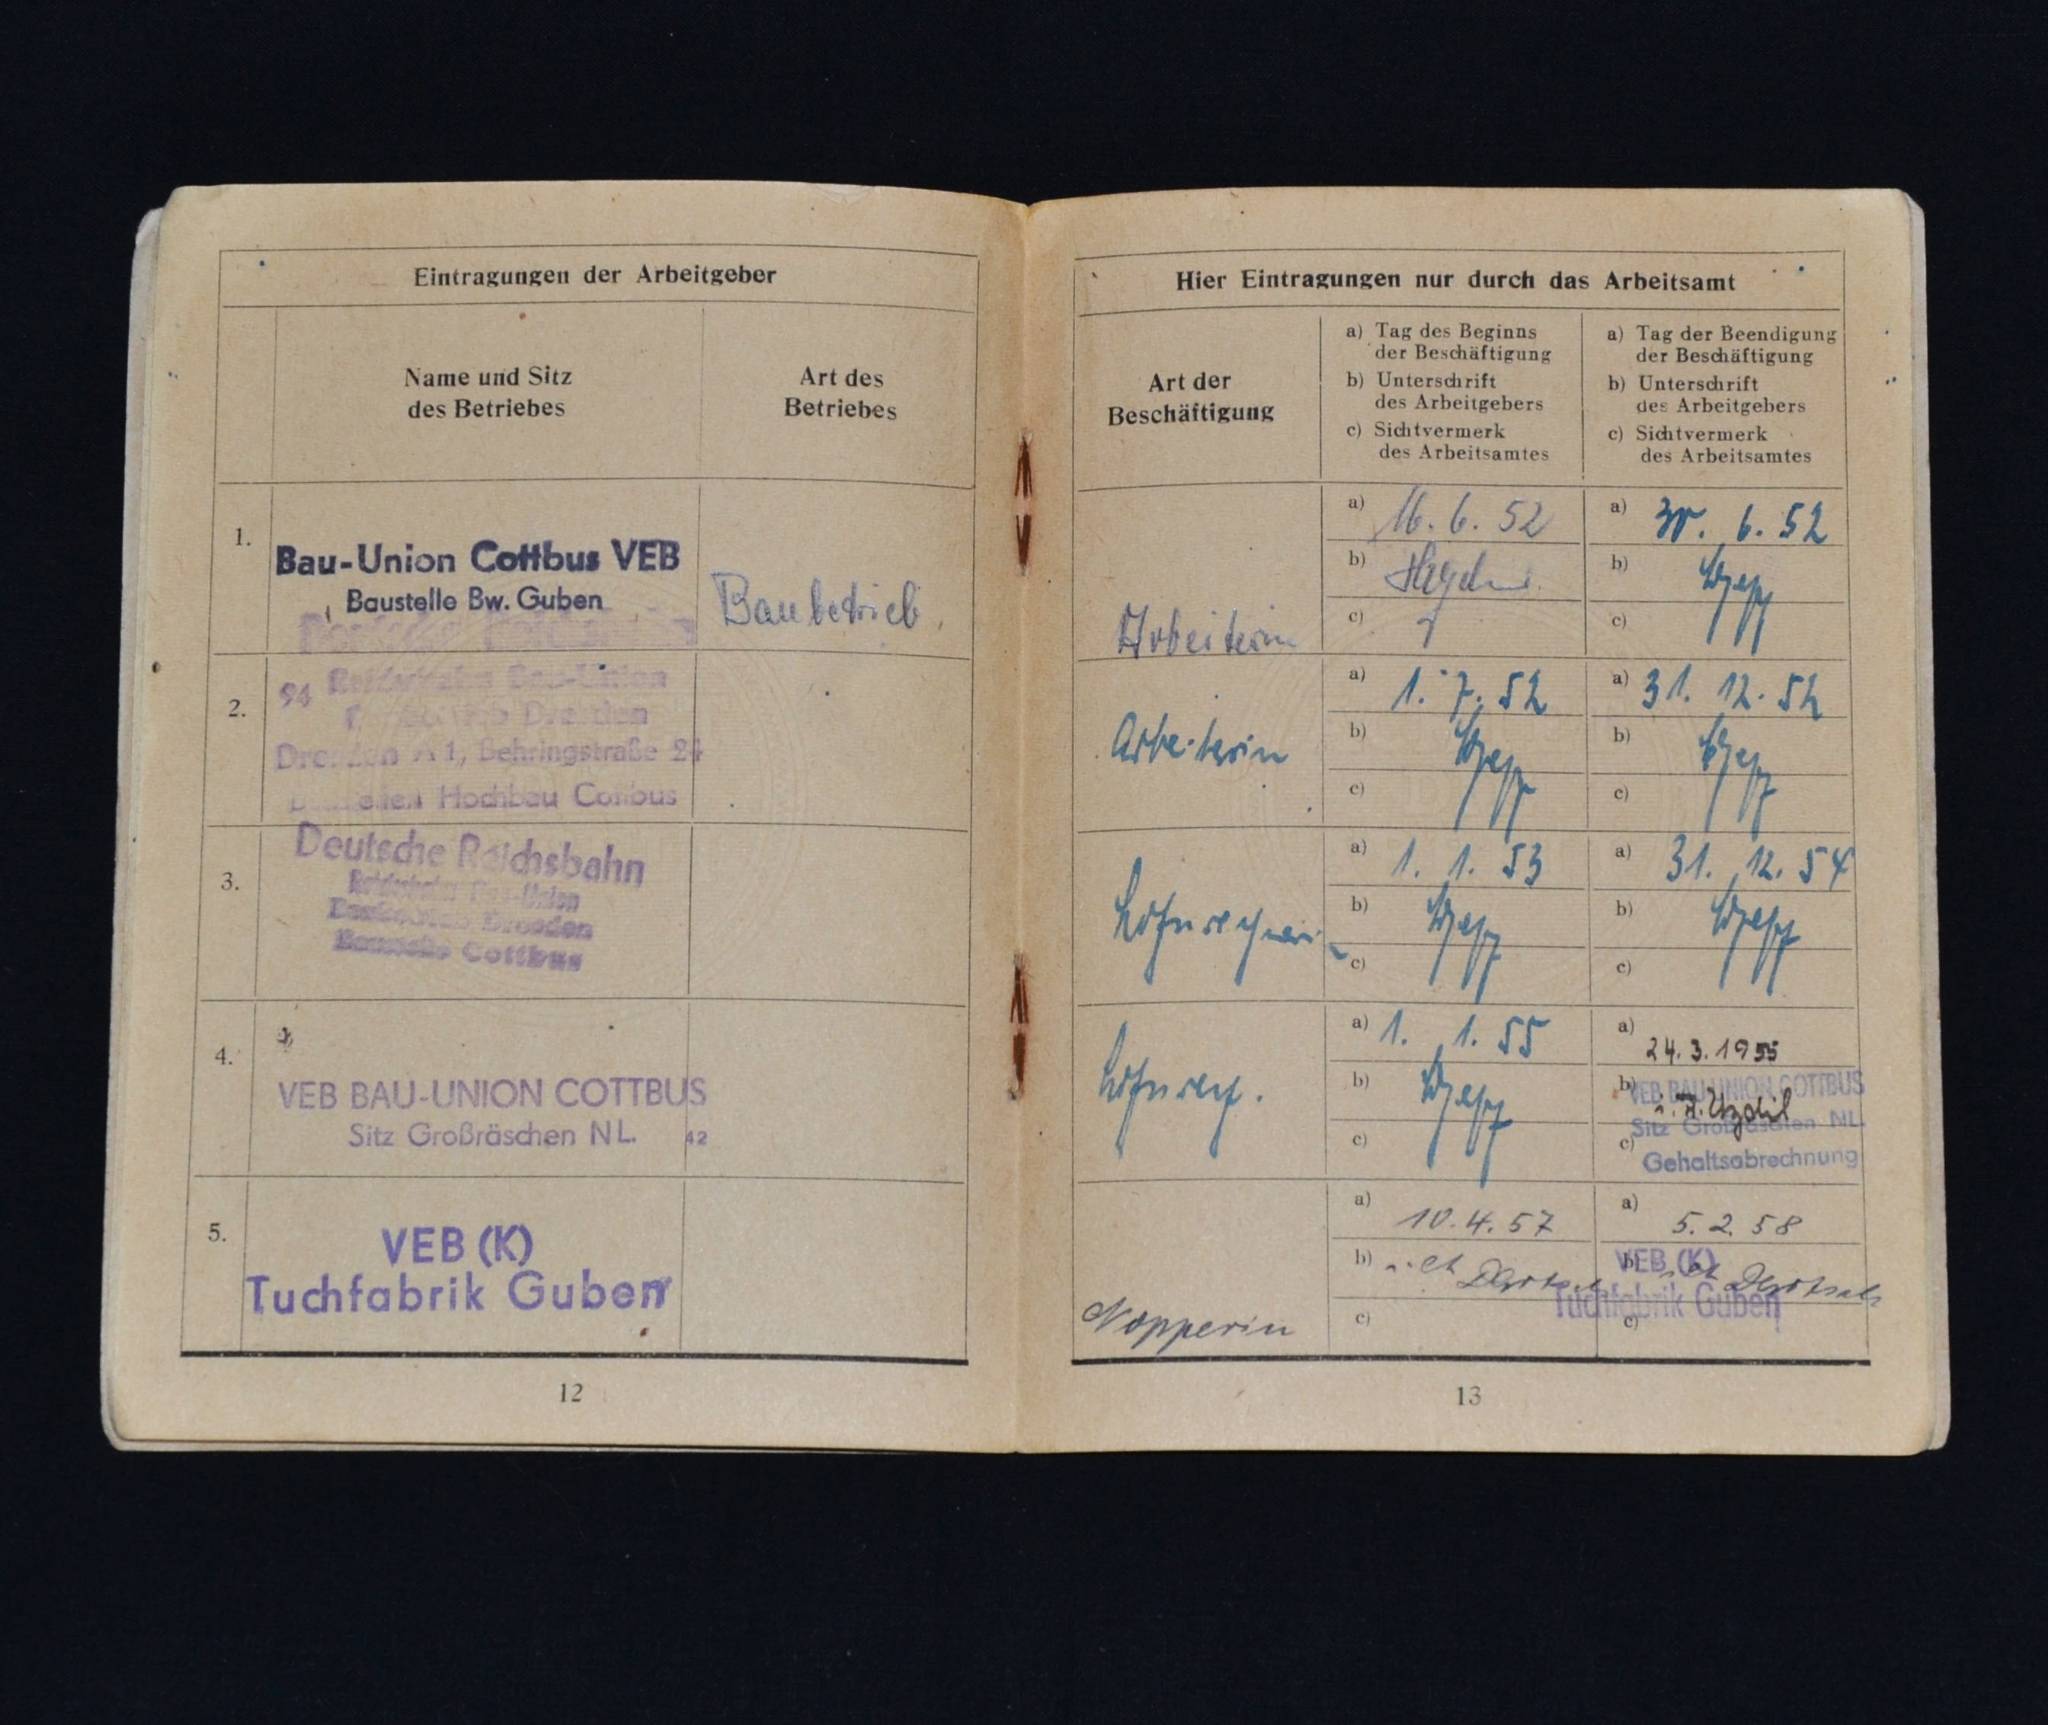 Eintragungen der Arbeitgeber
Name und Sitz
des Betriebes
Art des
Betriebes
1.
Bau-Union Cottbus VEB
Baustelle Bw. Guben
Baubetrieb
2.
94
Bau-Union
Dresden
Dresden A 1, Behringstraße 24
Hochbau Cottbus
3.
Deutsche Reichsbahn
Reichsbahn Bau-Union
Dresden
Cottbus
4.
VEB BAU-UNION COTTBUS
Sitz Großräschen NL. 42
5.
VEB (K)
Tuchfabrik Guben
12
Hier Eintragungen nur durch das Arbeitsamt
Art der
Beschäftigung
a) Tag des Beginns
der Beschäftigung
b) Unterschrift
des Arbeitgebers
c) Sichtvermerk
des Arbeitsamtes
a) Tag der Beendigung
der Beschäftigung
b) Unterschrift
des Arbeitgebers
c) Sichtvermerk
des Arbeitsamtes
Arbeiterin
a) 16. 6. 52
b)
c)
a) 30. 6. 52
b)
c)
Arbeiterin
a) 1. 7. 52
b)
c)
a) 31. 12. 52
b)
c)
a) 1. 1. 53
b)
c)
a) 31. 12. 54
b)
c)
a) 1. 1. 55
b)
c)
a) 24. 3. 1955
b) VEB BAU-UNION COTTBUS
Sitz Großräschen NL.
c) Gehaltsabrechnung
Nopperin
a) 10. 4. 57
b)
c)
a) 5. 2. 58
b) VEB (K)
Tuchfabrik Guben
c)
13